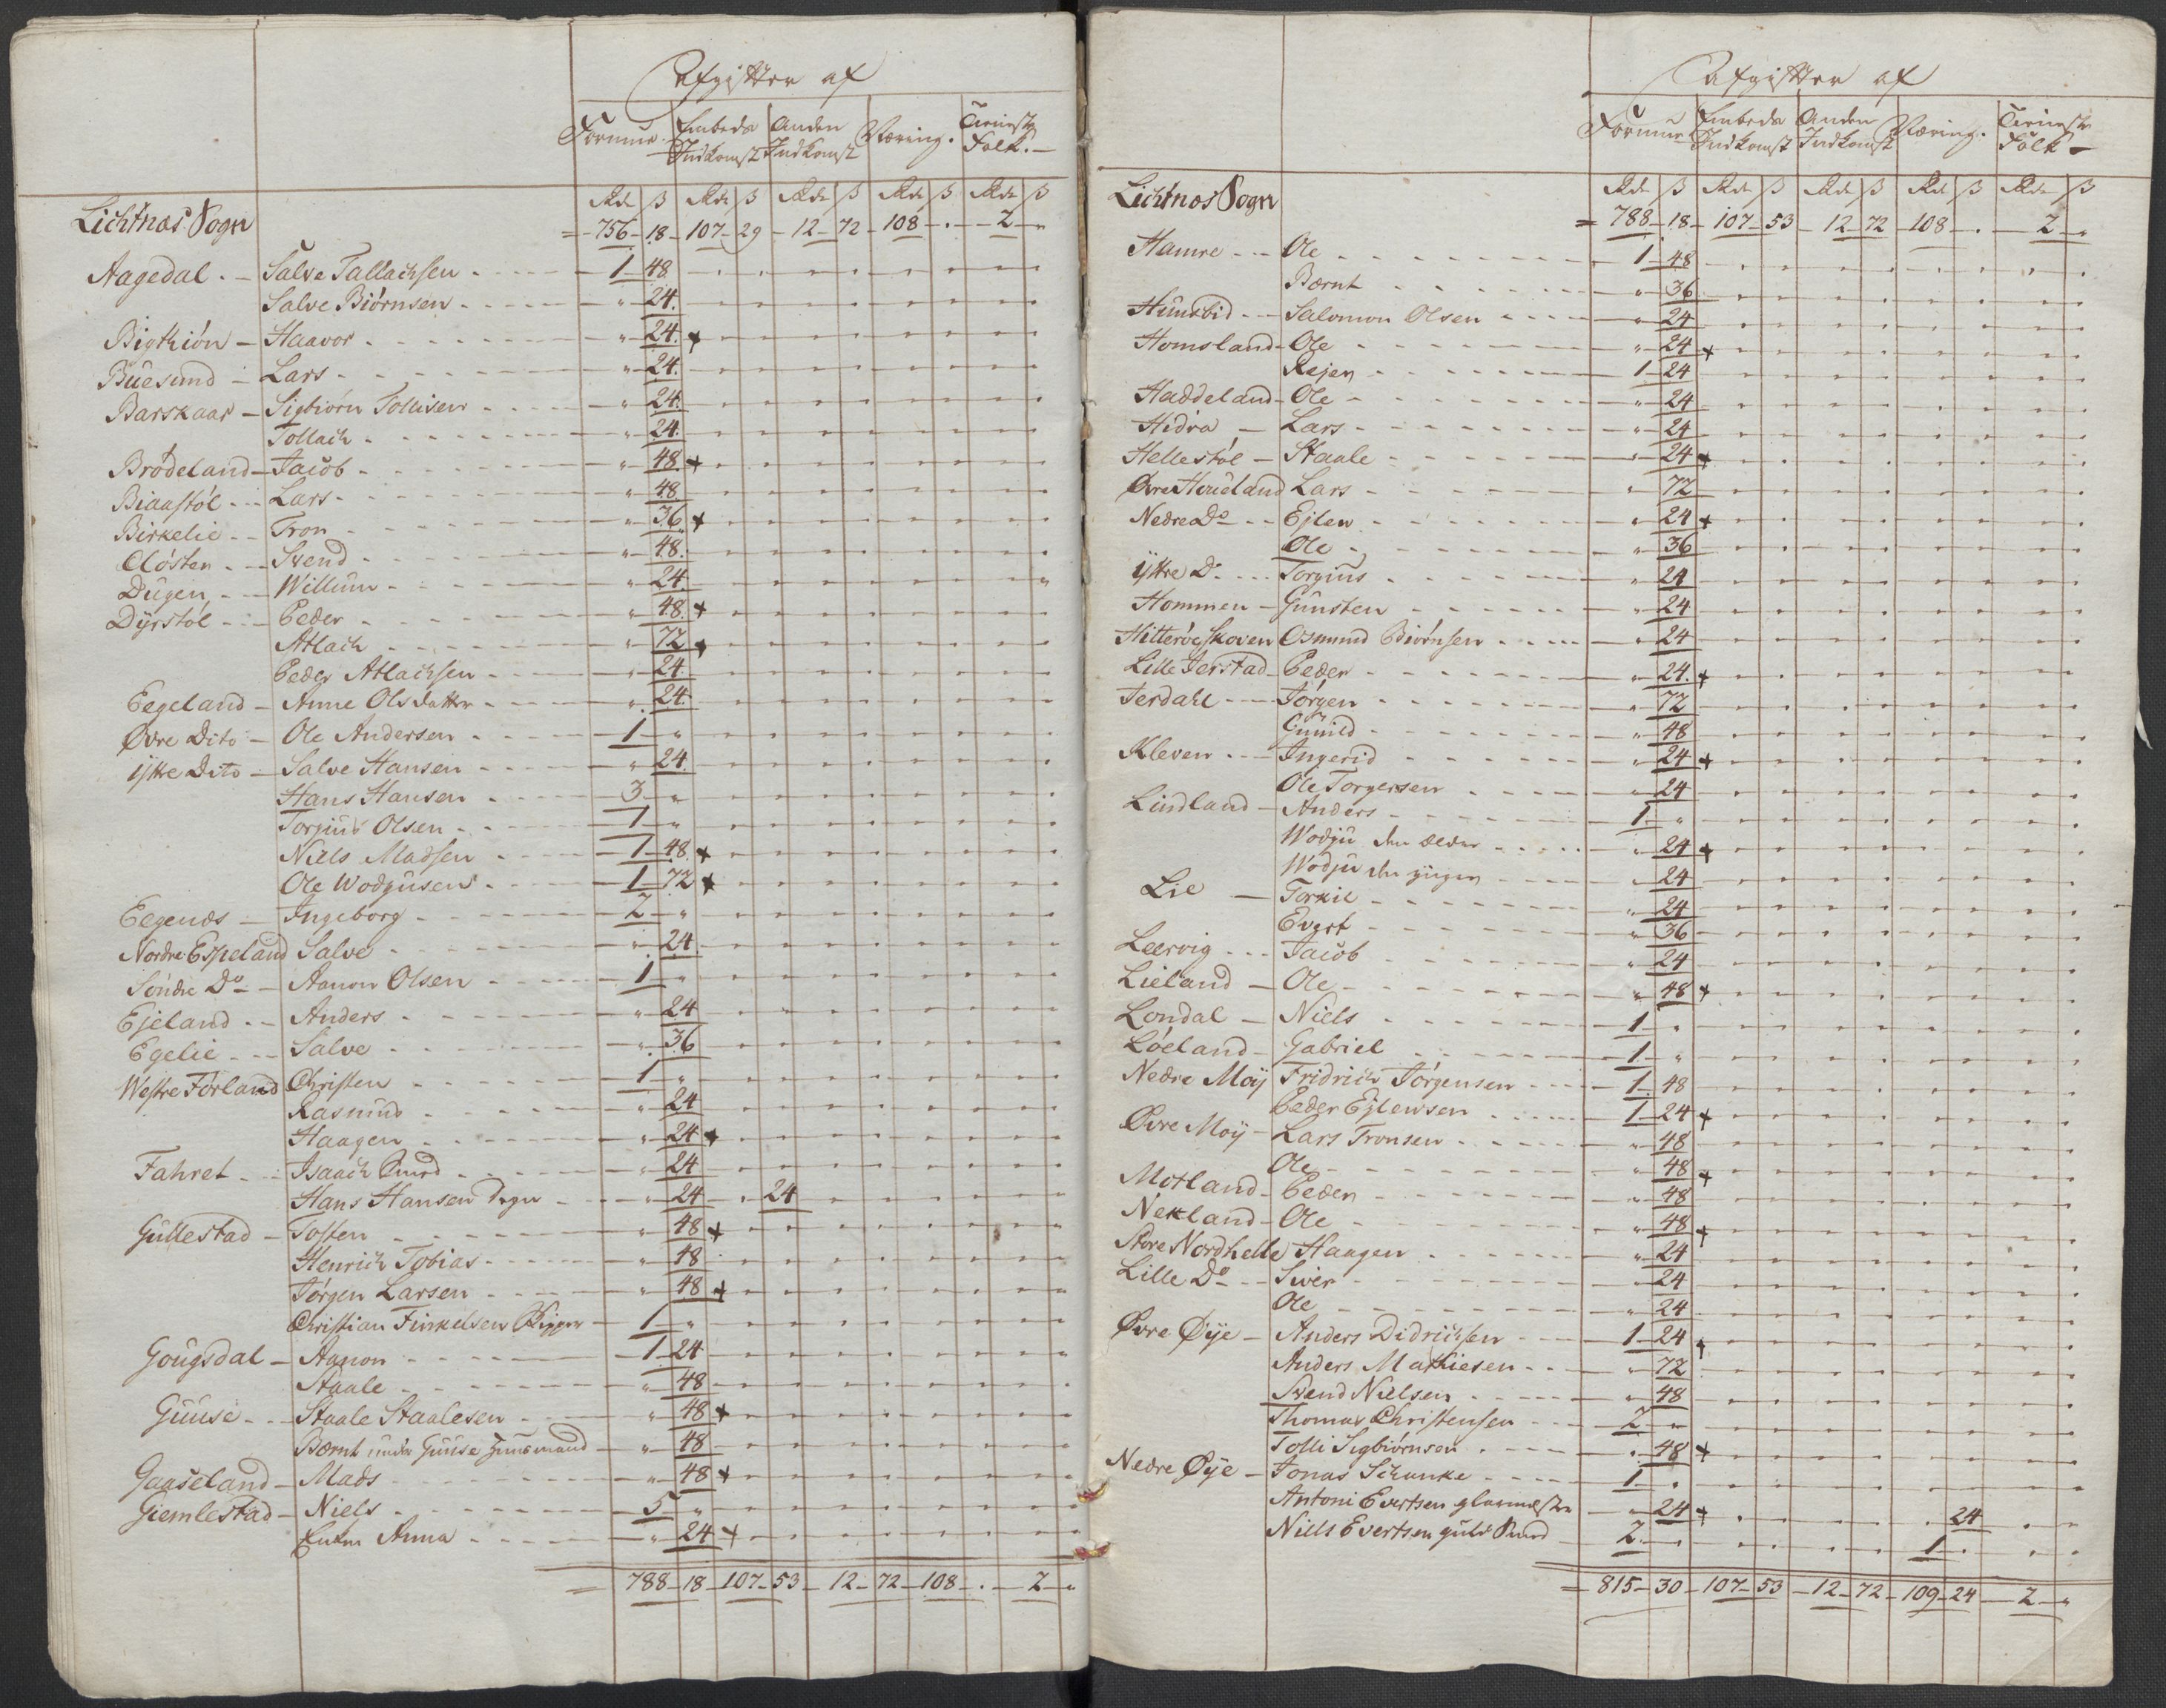 Afgifter af
Formue. Embeds Indkomst Anden Indkomst Næring. Tieniste Folk.
Rdr ß Rdr ß Rdr ß Rdr ß Rdr ß
Lichtnas Sogn = 756 - 18 - 107 - 29 - 12 - 72 - 108 - . - 2 - "
Aagedal - Salve Tallachsen - 1 - 48
Salve Biørnsen - " 24.
Bigtiøn - Haavor - " 24. +
Buesund - Lars - " 24.
Barskaar - Sigbiørn Tollisen - " 24.
Tollach - " 24.
Brødeland - Jacob - " 48. +
Biaastøl - Lars - " 48
Birkelie - Tron - " 36 +
Cløsten - Svend - " 48.
Dugen - Willum - " 24.
Dyrstøl - Peder - " 48. +
Atlach - " 72 +
Peder Atlachsen - " 24.
Eegeland - Anne Olsdatter - " 24.
Øvre Dito - Ole Andersen - 1 - "
Ÿtre Dito - Salve Hansen - " 24.
Hans Hansen - 3 - "
Torgius Olsen - 1 - "
Niels Madsen - 1 - 48. +
Ole Wodgusen - 1 - 72 +
Eegenæs - Ingeborg - 2 - "
Nordre Espeland Salve - " 24.
Søndre Do - Aanon Olsen - 1 - "
Ejeland - Anders - " 24
Egelie - Salve - " 36
Westre Førland Christen - 1 - "
Rasmus - " 24
Haagen - " 24 +
Fahret - Isaach Smed - " 24
Hans Hansen Degn - " 24 - " 24
Gullestad - Tosten - " 48 +
Henrich Tobias - " 48
Jørgen Larsen - " 48 +
Christian Finkelsen Skipper - 1 - "
Gougsdal - Aanon - 1 24
Staale - " 48
Guuse - Staale Staalesen - " 48 +
Bærnt under Guuse Huusmand - " 48
Gaaseland - Mads - " 48 +
Giemlestad - Niels - 5 - "
Enken Anna - " 24 +
= 788 - 18 - 107 - 53 - 12 - 72 - 108 - . - 2 - "
Afgifter af
Formue Embeds Indkomst Anden Indkomst Næring. Tieniste Folk
Rdr ß Rdr ß Rdr ß Rdr ß Rdr ß
Lichtnos Sogn = 788 - 18 - 107 - 53 - 12 - 72 - 108 - . - 2 - "
Hamre - Ole - 1 - 48
Bærnt - " 36
Hunsbid - Salomon Olsen - " 24
Homsland - Ole - " 24 +
Rejer - 1 - 24
Haddeland - Ole - " 24
Hidra - Lars - " 24
Hellestøl - Staale - " 24 +
Øvre Houeland Lars - " 72
Nedre Do - Ejlen - " 24 +
Ole - " 36
Ÿtre Do - Torgius - " 24
Hommen - Gunsten - " 24
Hitterøe Skoven Osmund Biørnsen - " 24
Lille Jerstad - Peder - " 24. +
Jerdahl - Jørgen - " 72
Gunild - " 48
Kleven - Ingerid - " 24 +
Ole Torgersen - " 24
Lindland - Anders - 1 - "
Wodju den ælder - " 24 +
Wodju den yngre - " 24
Lie - Torkil - " 24
Evert - " 36
Leervig - Jacob - " 24
Lieland - Ole - " 48 +
Londal - Niels - 1 - "
Løeland - Gabriel - 1 - "
Nedre Moÿ Fridrich Jørgensen - 1 - 48
Peder Ejlewsen - 1 - 24 +
Øvre Moÿ - Lars Tronsen - " 48
Ole - " 48 +
Motland - Peder - " 48
Netland - Ole - " 48 +
Store Nordhelle Haagen - " 24
Lille Do - Siver - " 24
Ole - " 24
Øvre Øÿe - Anders Didrichsen - 1 - 24 +
Anders Mathiesen - " 72
Svend Nielsen - " 48
Thomas Christensen - 2 - "
Tolli Sigbiørnsen - " 48 +
Nedre Øÿe - Jonas Schanke - 1 - "
Antoni Evertsen glarmester - " 24 + . . . . 24
Niels Evertsen guld Smed - 2 . . . . . 1 .
= 815 - 30 - 107 - 53 - 12 - 72 - 109 - 24 - 2 - "